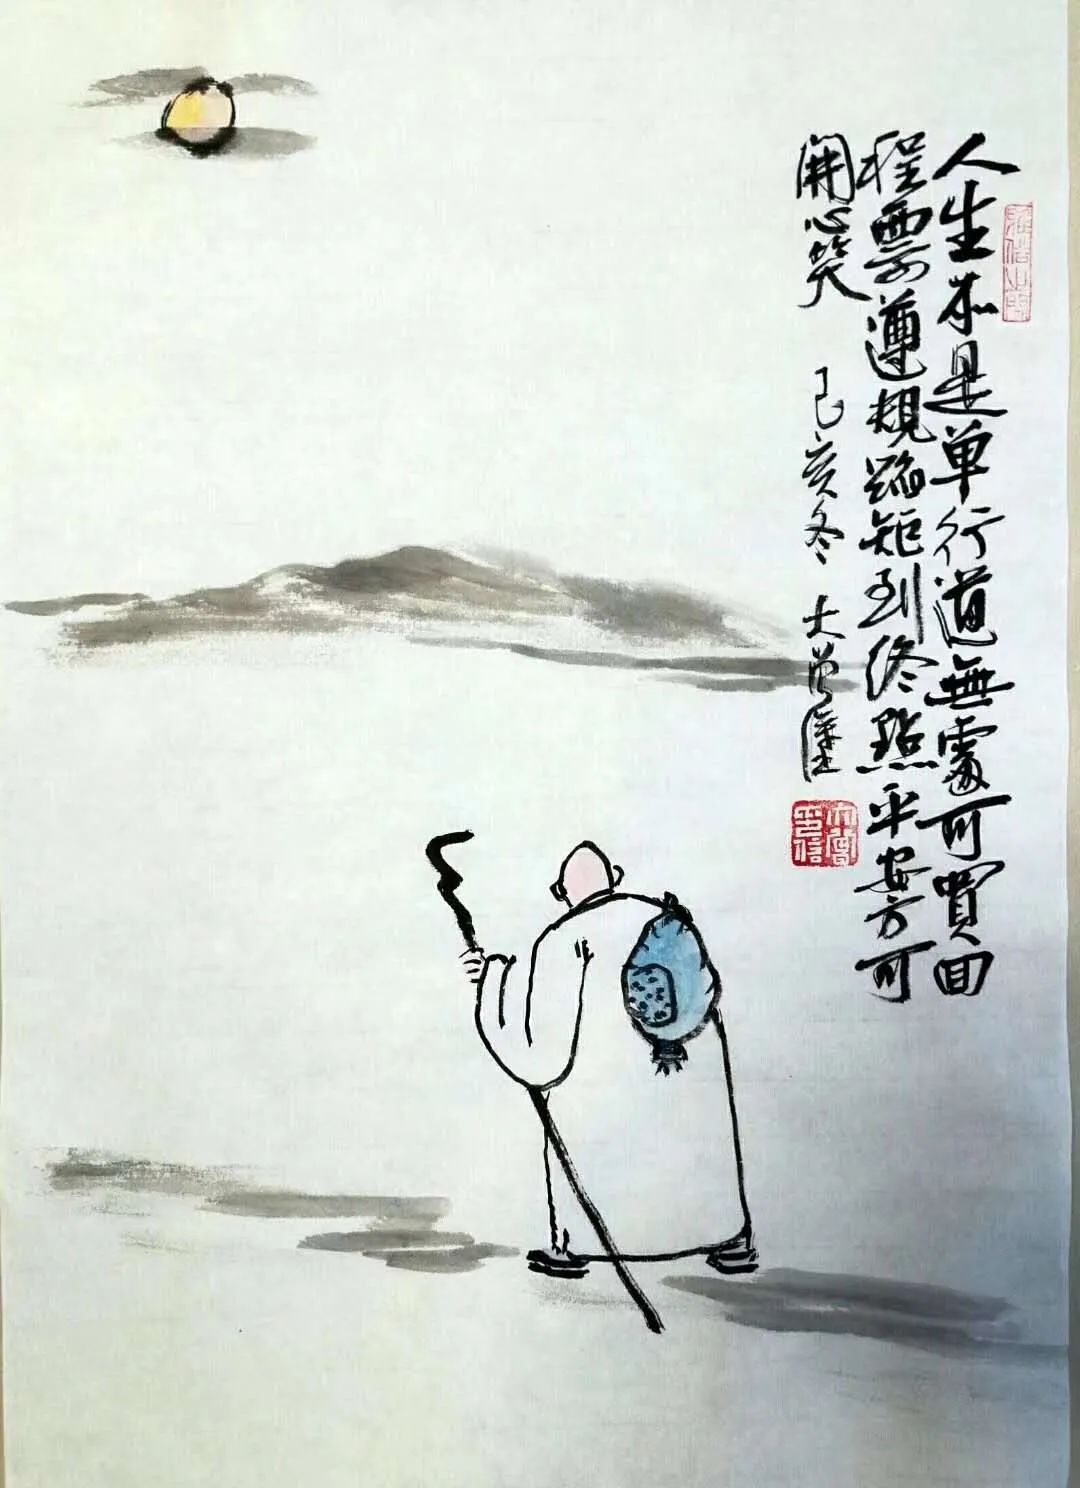 人生本是单行道無處可買回
程票遵規蹈矩到终點平安方可
開心笑 己亥冬 大